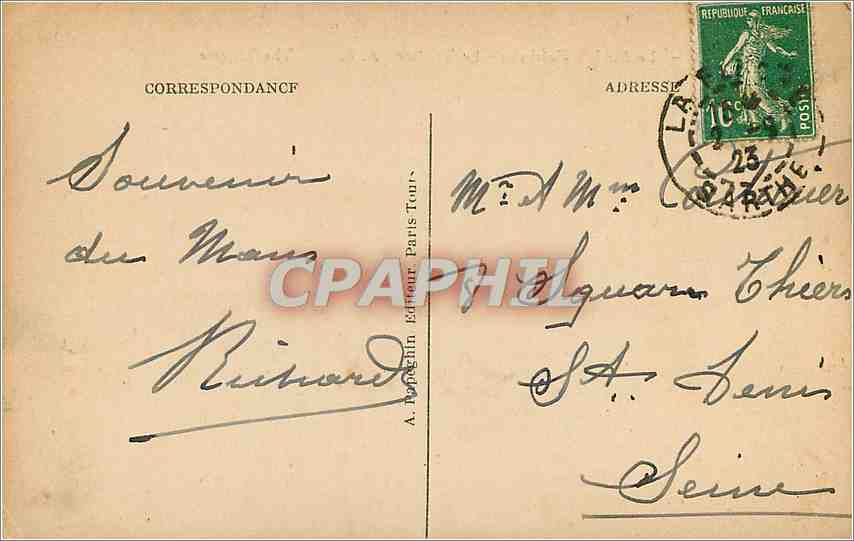 REPUBLIQUE FRANÇAISE
10 c
POSTES
LA
23
SARTHE
CORRESPONDANCE
ADRESSE
Souvenir
du Mans
Richard
A. Papeghin Editeur, Paris-Tours
CPAPHIL
Mr & Mme
8 Square Thiers
St. Denis
Seine